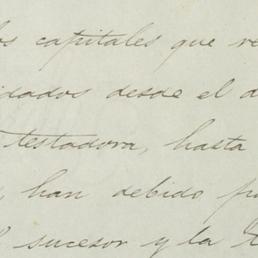 os capitales que re
dados desde el d
testadora, hasta
, han debido pa
sucesor y la